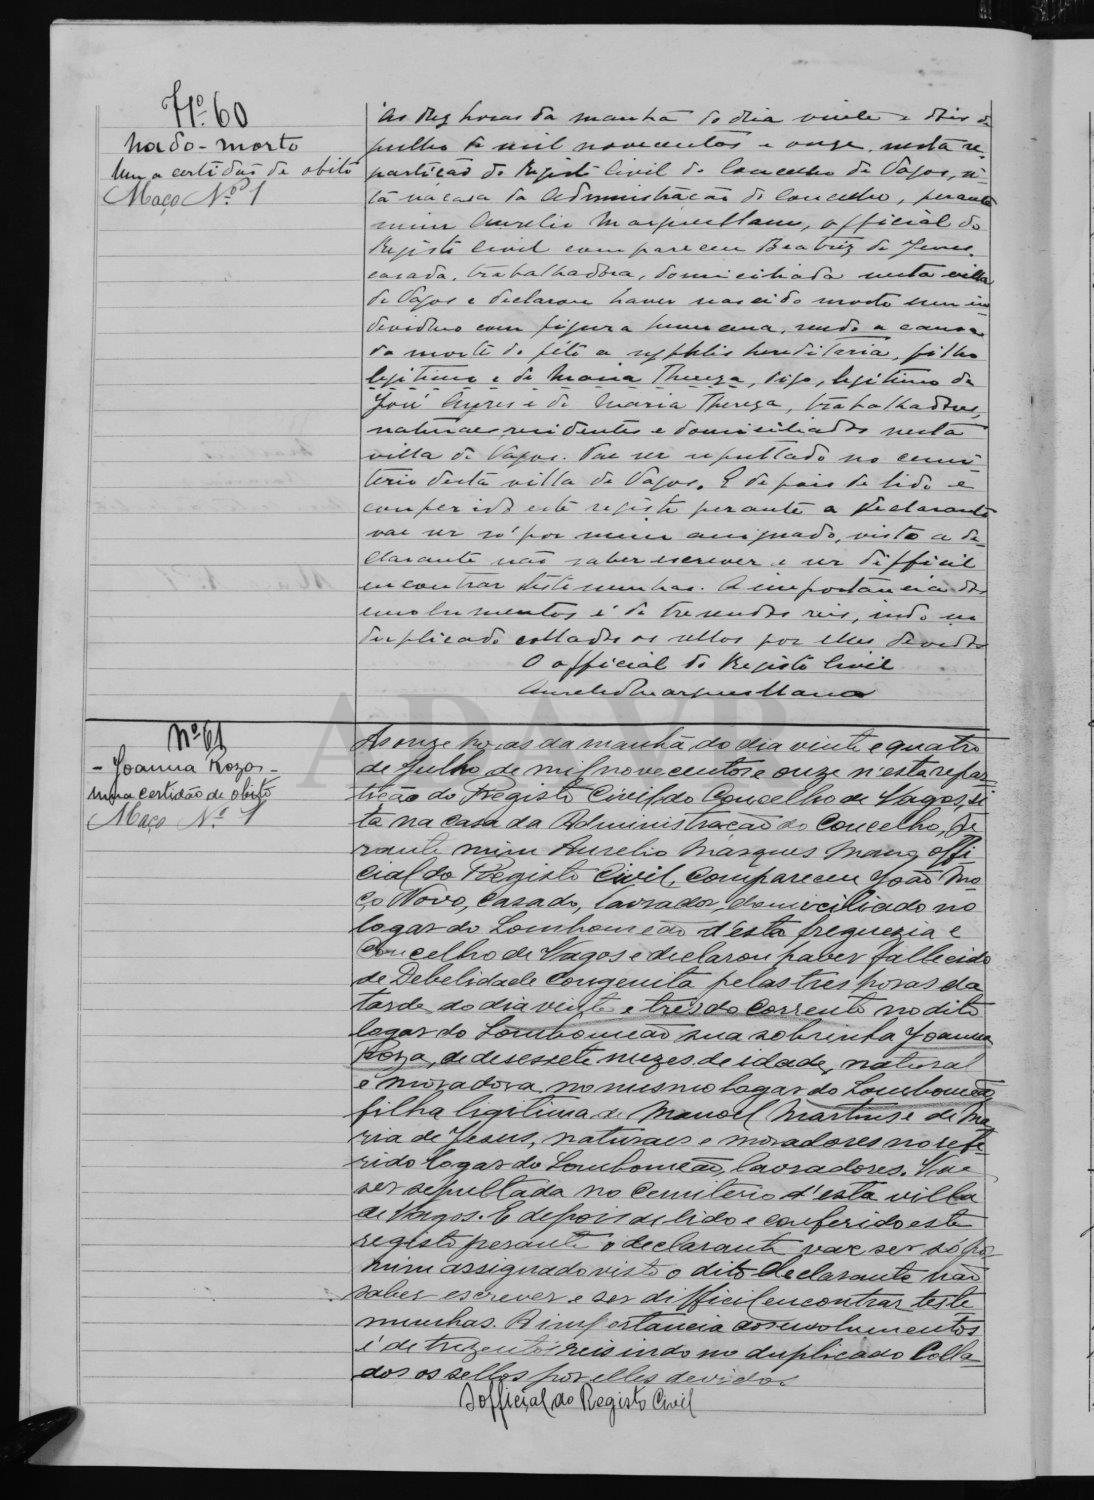 Nº 60
nado-morto
Uma certidão de obito
Maço Nº 1
Ás dez horas da manhã do dia vinte e dois de
julho de mil novecentos e onze, nesta re-
partição do Registo Civil do Concelho de Vagos, si-
ta na casa da Administração do Concelho, perante
mim Aurelio Marques Mano, official do
Registo Civil compareceu Beatriz de Jesus,
casada, trabalhadora, domiciliada nesta villa
de Vagos e declarou haver nascido morto um in-
dividuo com figura humana, sendo a causa
da morte do féto a syphlis hereditaria, filho
legitimo e de Maria Thereza, digo, legitimo de
José Ayres e de Maria Thereza, trabalhadores,
naturaes, residentes e domiciliados nesta
villa de Vagos. Vae ser sepultado no cemi-
terio desta villa de Vagos. E depois de lido e
conferido este registo perante a declarante
vae ser só por mim assignado, visto a de-
clarante não saber escrever e ser difficil
encontrar testemunhas. A importancia dos
emolumentos é de trezentos reis, indo no
duplicado collados os sellos por elles devidos
O official do Registo Civil
Aurelio Marques Mano
ADAVR
Nº 61
- Joanna Roza -
uma certidão de obito
Maço Nº 1
As onze horas da manhã do dia vinte e quatro
de Julho de mil novecentos e onze n'esta repar-
tição do Registo Civil do Concelho de Vagos, si
ta na casa da Administração do Concelho, pe
rante mim Aurelio Marques Mano, offi
cial do Registo Civil, compareceu João Mo
ço Novo, casado, lavrador, domiciliado no
logar do Lombomeão d'esta freguezia e
Concelho de Vagos e declarou haver fallecido
de Debelidade congenita pelas tres horas da
tarde do dia vinte e tres do corrente no dito
logar do Lombomeão sua sobrinha Joanna
Roza, de desessete mezes de idade, natural
e moradora no mesmo logar do Lombomeão
filha ligitima de Manoel Martins e de Ma
ria de Jesus, naturaes e moradores no refe
rido logar do Lombomeão, lavradores. Vae
ser sepultada no cemiterio d'esta villa
de Vagos. E depois de lido e conferido este
registo perante o declarante vae ser só por
mim assignado visto o dito declarante não
saber escrever e ser difficil encontrar teste
munhas. A importancia dos emolumentos
é de trezentos reis indo no duplicado Colla-
dos os sellos por elles devidos
O official do Registo Civil